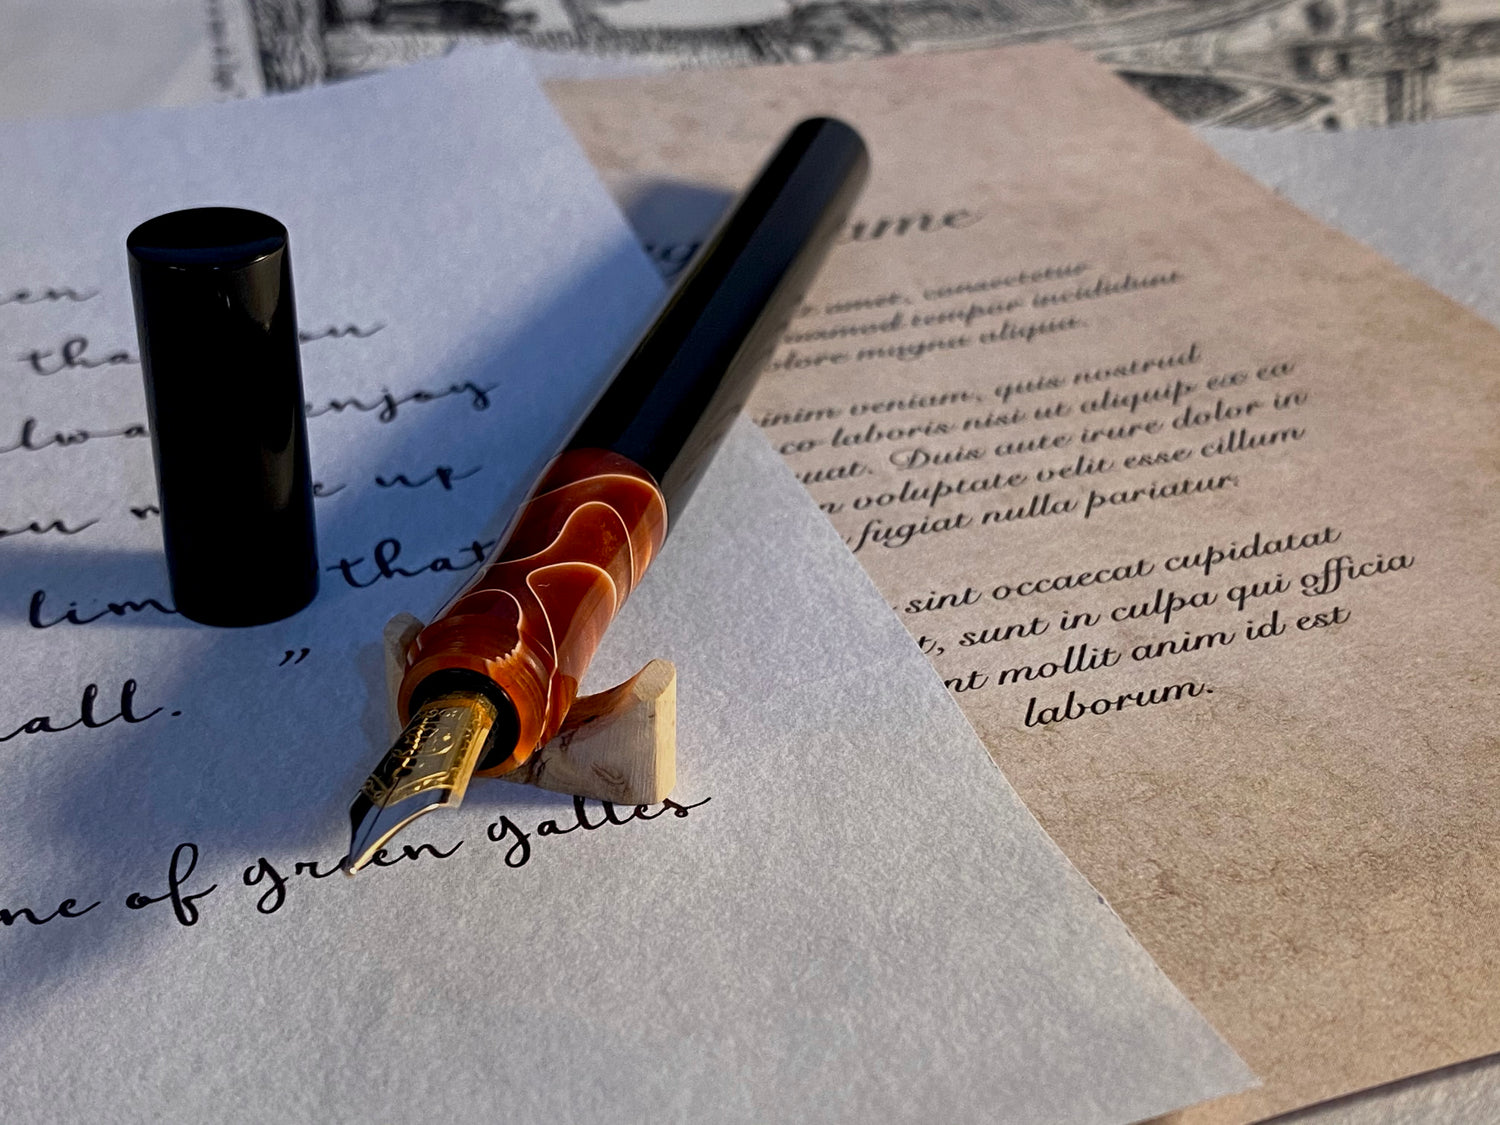 en
tha ou
lwa enjoy
ou m e up
lim that
”
all.
ne of green galles
ume
r amet, consectetur
iusmod tempor incididunt
olore magna aliqua.
inim veniam, quis nostrud
co laboris nisi ut aliquip ex ea
uat. Duis aute irure dolor in
n voluptate velit esse cillum
fugiat nulla pariatur.
sint occaecat cupidatat
t, sunt in culpa qui officia
nt mollit anim id est
laborum.